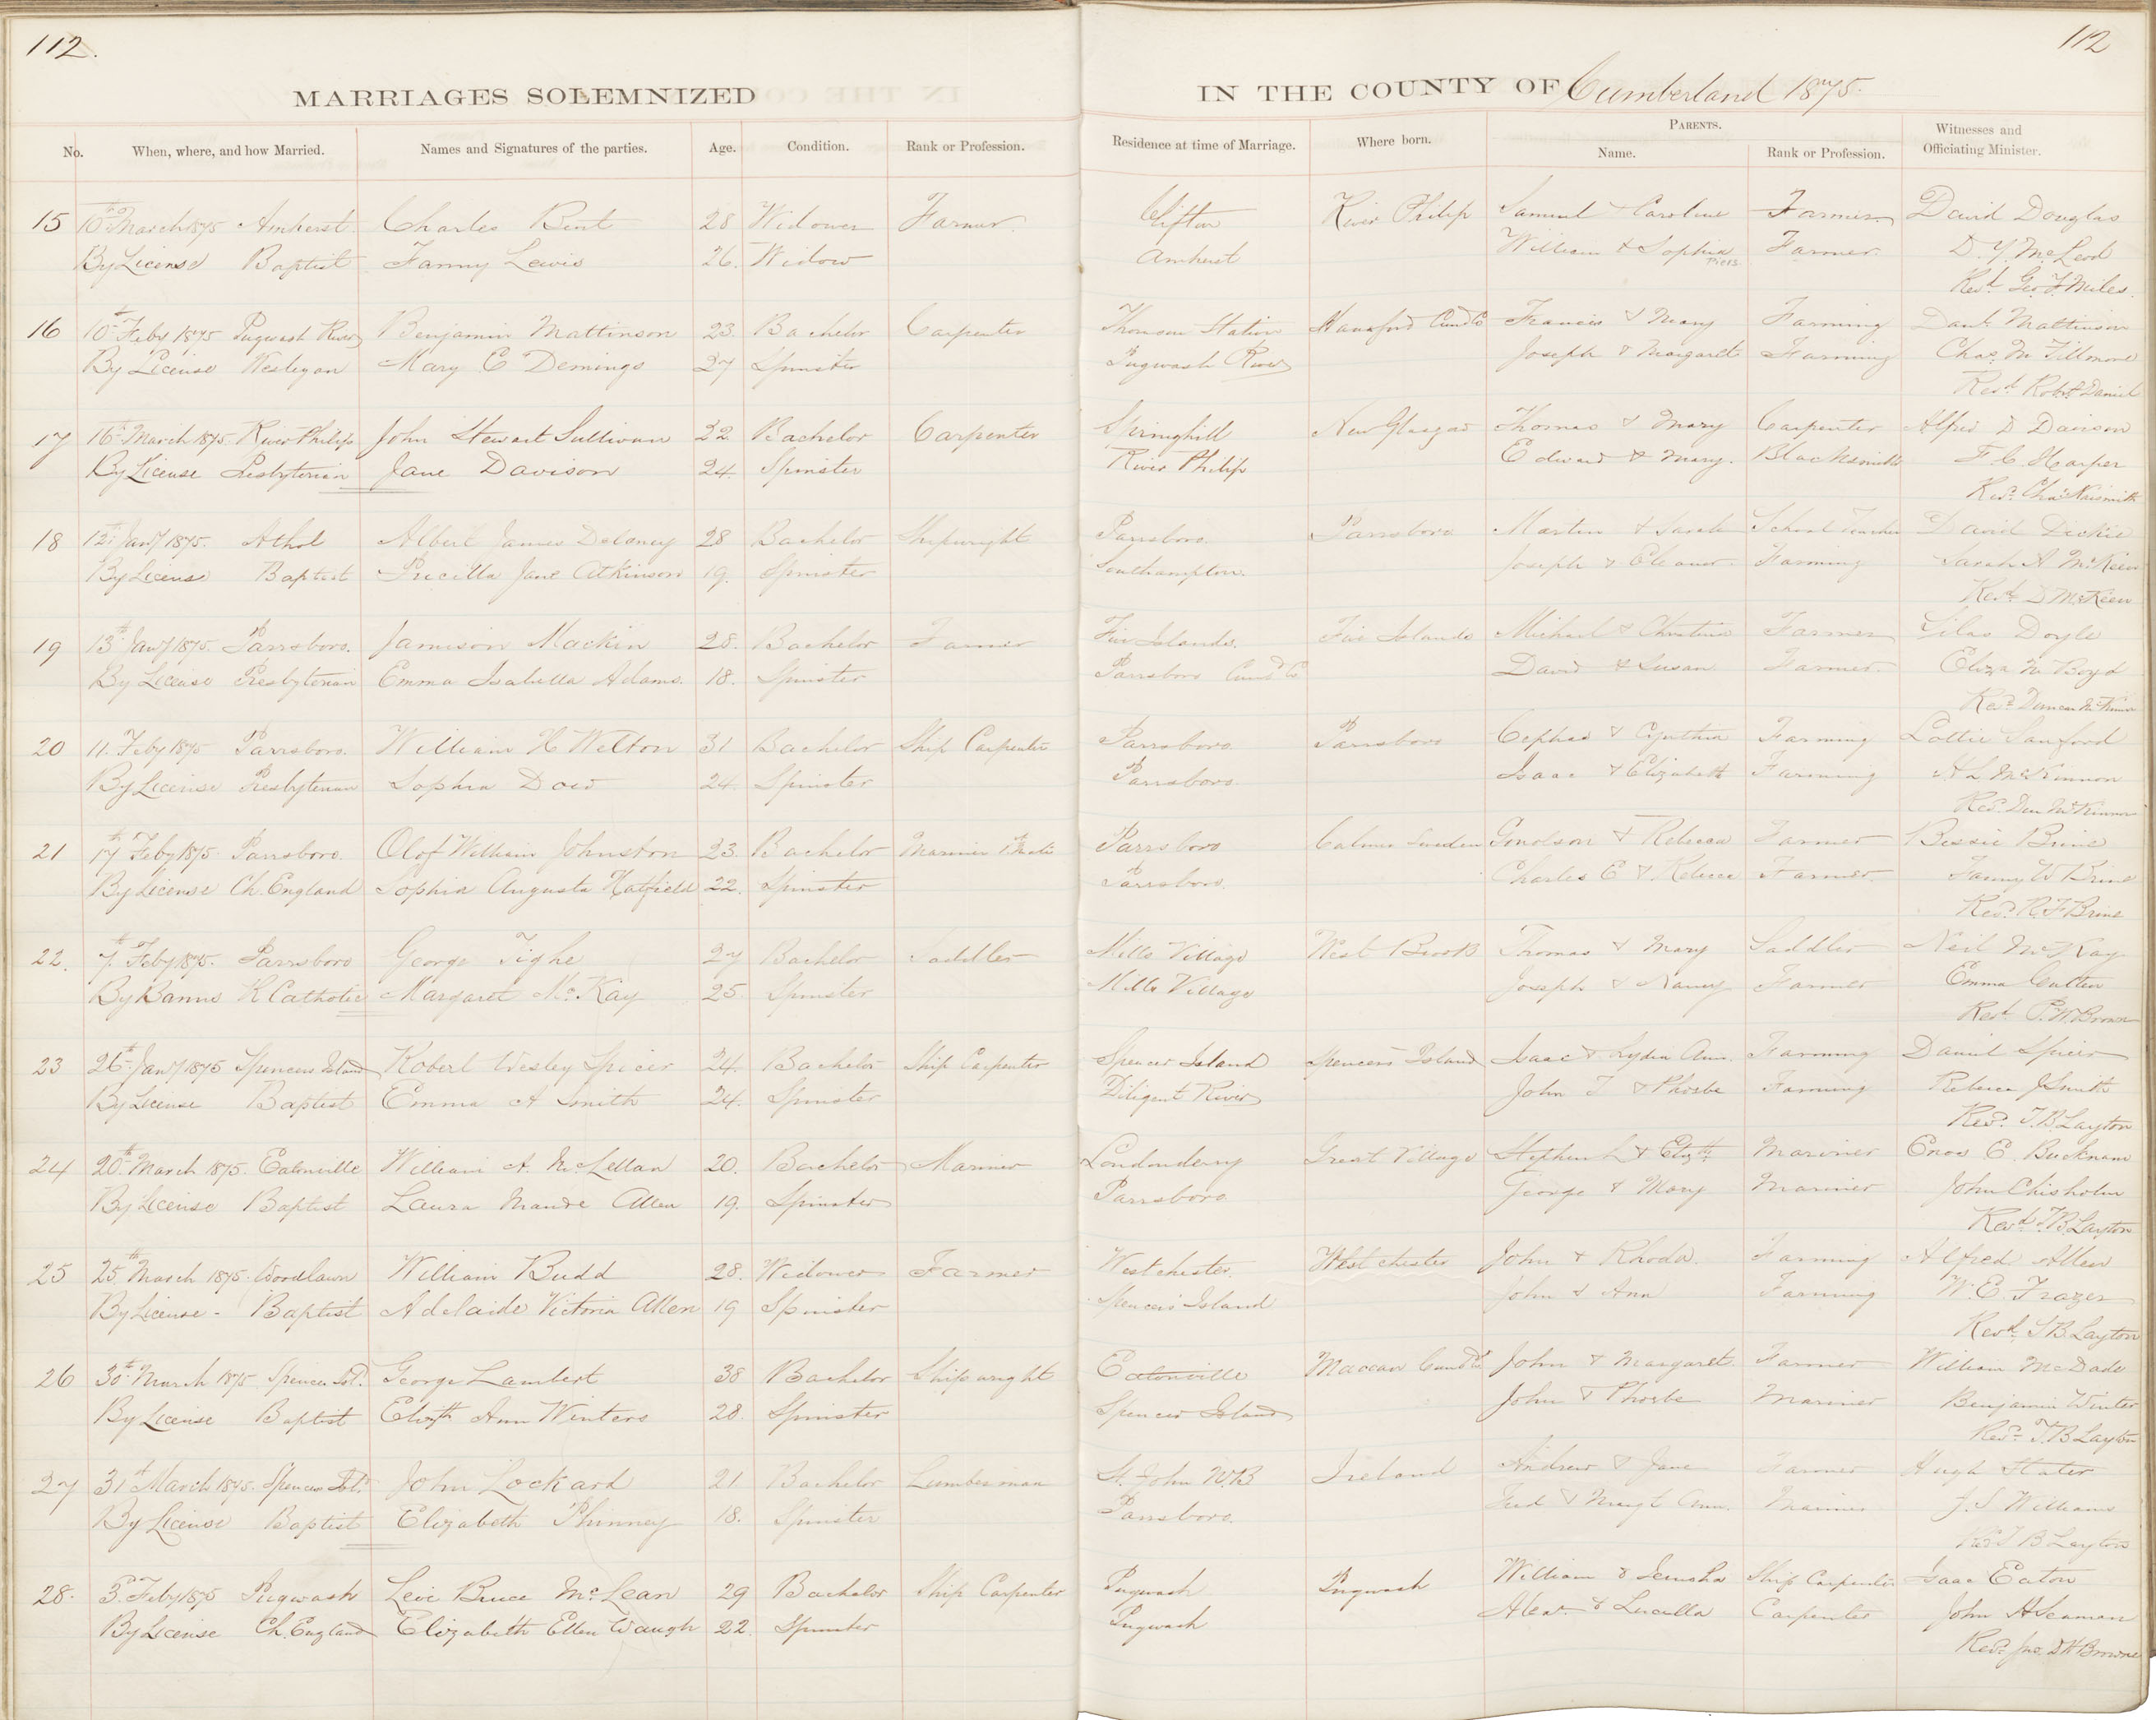 112.
112
MARRIAGES SOLEMNIZED
IN THE COUNTY OF Cumberland 1875.
No. When, where, and how Married. Names and Signatures of the parties. Age. Condition. Rank or Profession. Residence at time of Marriage. Where born. PARENTS. Name. Rank or Profession. Witnesses and Officiating Minister.
15 10th March 1875 Amherst Charles Bent 28 Widower Farmer Clifton River Philip Samuel & Caroline Farmer David Douglas
By License Baptist Fanny Lewis 26. Widow Amherst William & Sophia Piers Farmer D. Y. McLeod
Revd. Geo. F. Miles.
16 10th Feby 1875 Pugwash River Benjamin Mattinson 23. Bachelor Carpenter Thomson Station Hansford Cumd Co Francis & Mary Farming Danl. Mattinson
By License Wesleyan Mary E Demings 27 Spinster Pugwash River Joseph & Margaret Farming Chas. M Fillmore
Revd. Robt Daniel
17 16th March 1875. River Philip John Stewart Sullivan 22 Bachelor Carpenter Springhill New Glasgow Thomas & Mary Carpenter Alfred D Davison
By License Presbyterian Jane Davison 24. Spinster River Philip Edward & Mary. Blacksmith F C Harper
Revd. Chas. Naismith
18 12th Jany 1875. Athol Albert James Delaney 28 Bachelor Shipwright Parrsboro. Parrsboro Martin & Sarah School Teacher David Dickie
By License Baptist Pricilla Jane Atkinson 19. Spinster Southampton. Joseph & Eleanor Farming Sarah A McKeen
Revd. D McKeen
19 13th Jany 1875. Parrsboro. Jamison Mackin 28. Bachelor Farmer Five Islands. Five Islands Michael & Christina Farmer Silas Doyle
By License Presbyterian Emma Isabella Adams. 18. Spinster Parrsboro Cumd Co David & Susan Farmer. Eliza M Boyd
Revd. Duncan McKinnon
20 11. Feby 1875 Parrsboro. William H Welton 31 Bachelor Ship Carpenter Parrsboro. Parrsboro Cephas & Cynthia Farming Lottie Sanford
By License Presbyterian Sophia Dow 24. Spinster Parrsboro. Isaac & Elizabeth Farming A L McKinnon
Revd. Dun McKinnon
21 17th Feby 1875. Parrsboro. Olof William Johnston 23. Bachelor Mariner Mate Parrsboro Calmer Sweden & Rebecca Farmer Bessie Brine
By License Ch. England Sophia Augusta Hatfield 22. Spinster Parrsboro. Charles E & Rebecca Farmer. Fanny W Brine
Revd. R. F Brine
22. 7th Feby 1875. Parrsboro George Tighe 27 Bachelor Saddler Mills Village West Brook Thomas & Mary Saddler Neil McKay
By Banns R Catholic Margaret McKay 25 Spinster Mills Village Joseph & Nancy Farmer Emma Cutten
Revd. P. W. Brown
23 26th Jany 1875 Spencers Island Robert Wesley Spicer 24. Bachelor Ship Carpenter Spencer Island Spencers Island Isaac & Lydia Ann. Farming Daniel Spicer
By License Baptist Emma A Smith 24. Spinster Diligent River John T & Phoebe Farming Rebecca J Smith
Revd. T. B. Layton
24 20th March 1875. Eatonville William A. McLellan 20. Bachelor Mariner Londonderry Great Village Stephen L & Elizth Mariner Enos E. Bucknam
By License Baptist Laura Maude Allen 19. Spinster Parrsboro George & Mary Mariner John Chisholm
Revd. T. B. Layton
25 25th March 1875. Woodlawn William Budd 28. Widower Farmer Westchester. Westchester John & Rhoda. Farming Alfred Allen
By License - Baptist Adelaide Victoria Allen 19 Spinster Spencers Island John & Ann Farming W. E. Frazer
Revd. T B Layton
26 30th March 1875. Spencer Isl. George Lambert 38 Bachelor Shipwright Eatonville Maccan Cumd Co John & Margaret Farmer William McDade
By License Baptist Elizth Ann Winters 28. Spinster Spencer Island John & Phoebe Mariner Benjamin Winter
Revd. T. B Layton
27 31st March 1875. Spencers Isl. John Lockard 21 Bachelor Lumberman St. John N.B Ireland Andrew & Jane Farmer Hugh Slater
By License Baptist Elizabeth Phinney 18. Spinster Parrsboro. & Margt Ann. Mariner J. S Williams
Revd. T B Layton
28. 3d. Feby 1875 Pugwash Levi Bruce McLean 29 Bachelor Ship Carpenter Pugwash Pugwash William & Jerusha Ship Carpenter Isaac Eaton
By License Ch. England Elizabeth Ellen Waugh 22. Spinster Pugwash Alexr. & Lucilla Carpenter John H Seaman
Revd. Jno. D H Browne